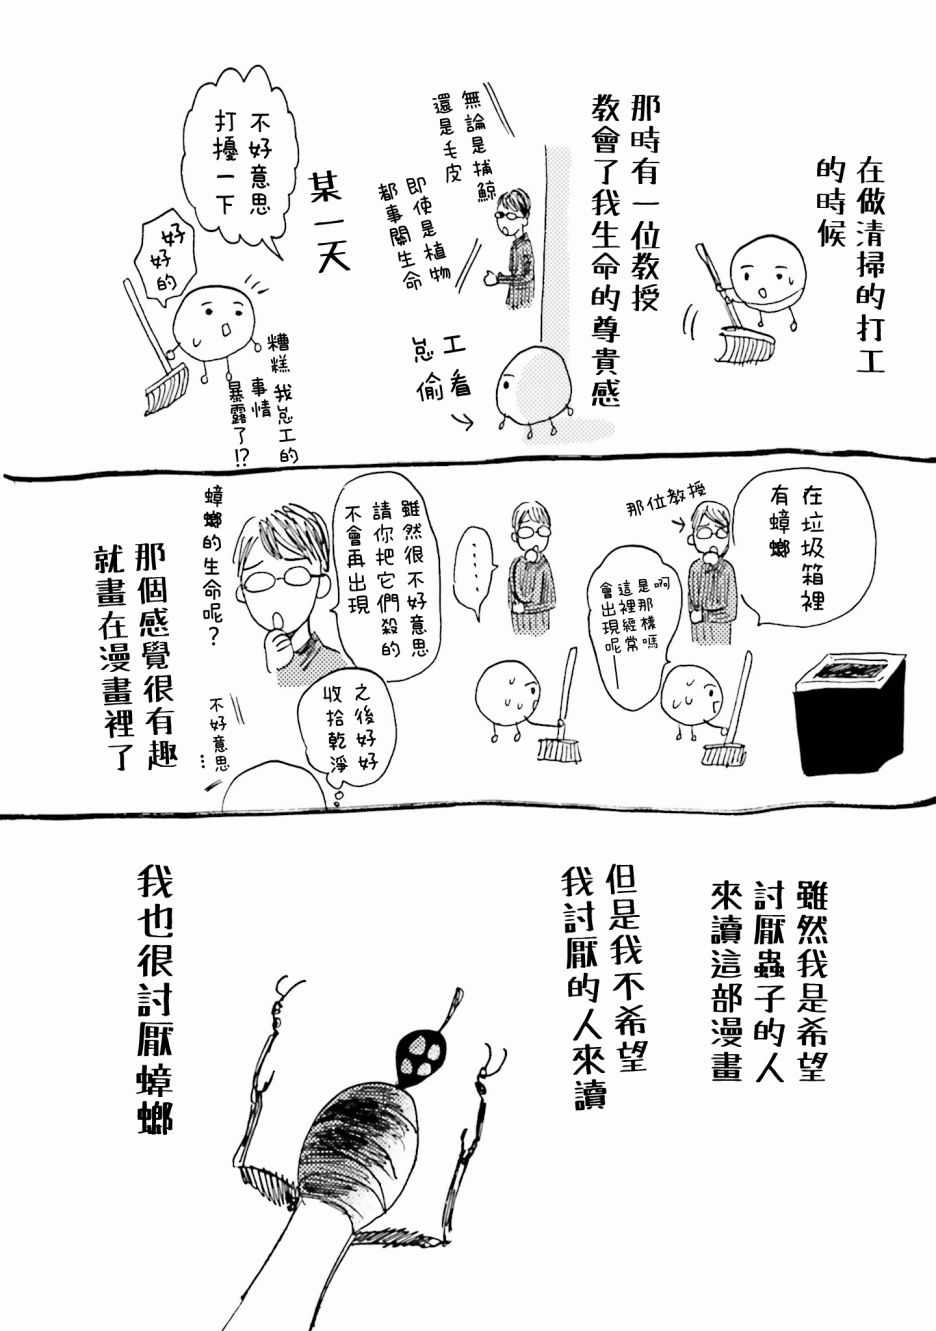 在做清掃的打工
的時候
那時有一位教授
教會了我生命的尊貴感
無論是捕鯨
還是毛皮
即使是植物
都事關生命
怠工
偷看
某一天
不好意思
打擾一下
好
好的
糟糕 我怠工的
事情
暴露了!?
在垃圾箱裡
有蟑螂
那位教授
啊
是那樣嗎
這裡經常
會出現呢
.....
雖然很不好意思
請你把它們殺的
不會再出現
蟑螂的生命呢?
之後好好
收拾乾淨
不好意思…
那個感覺很有趣
就畫在漫畫裡了
雖然我是希望
討厭蟲子的人
來讀這部漫畫
但是我不希望
我討厭的人來讀
我也很討厭蟑螂